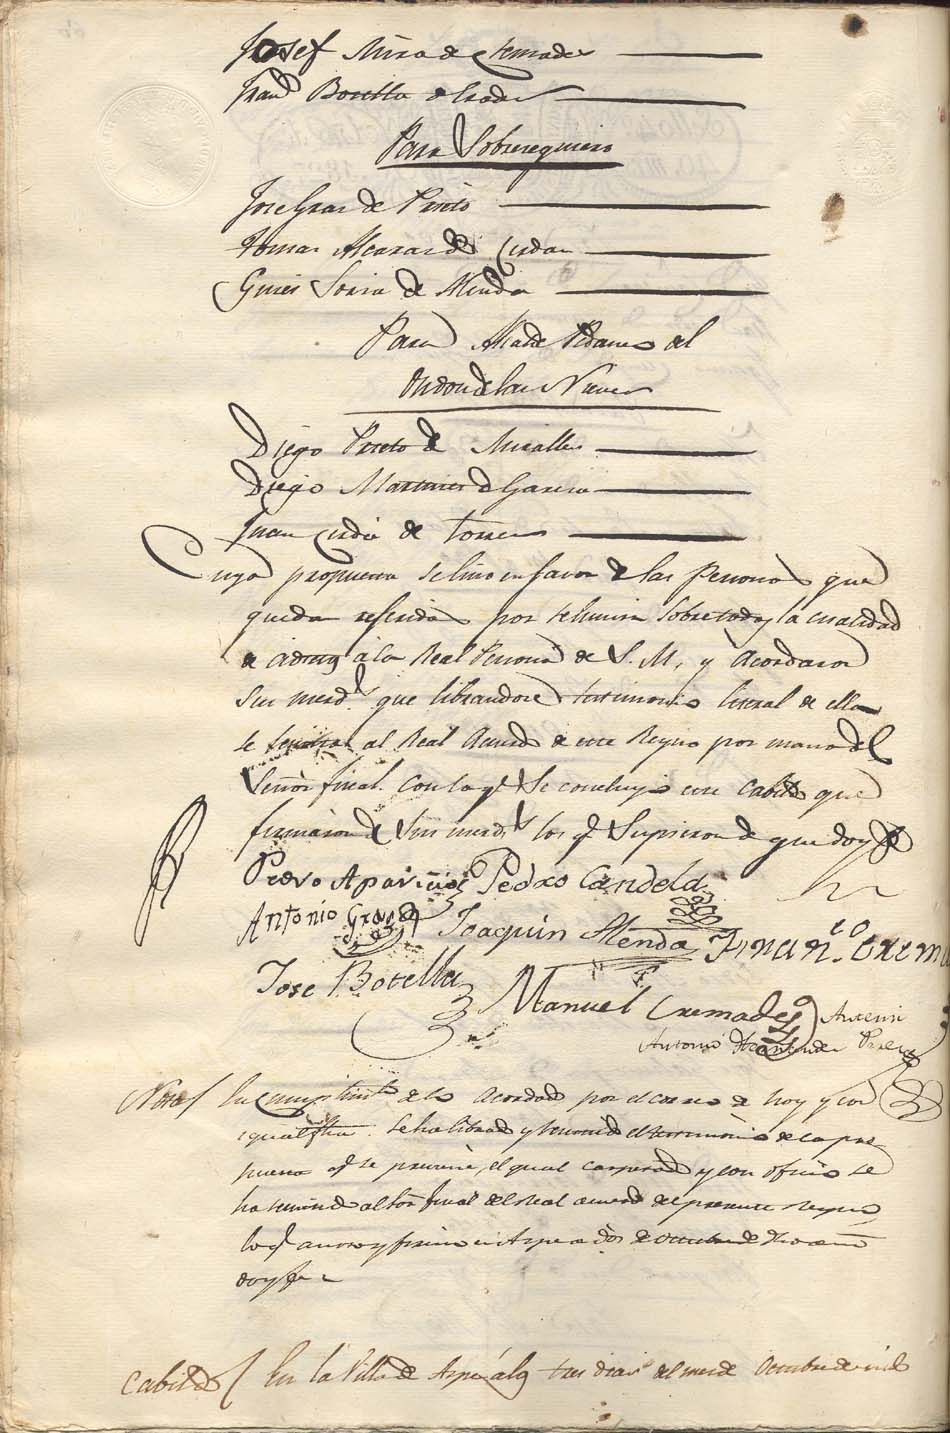 Josef Mira de Cremades
Franco Botella de Prades
Para Sobrecequiero
Jose Gras de Prieto
Tomas Alcaras de Cerdan
Gines Soria de Abenda
Para Alcalde Pedaneo del
Ondon de las Nieves
Diego Prieto de Miralles
Diego Martines de Garcia
Juan Cerdá de Torres
Cuya propuesta se hiso en favor de las Personas que
quedan referidas por reunir sobre todo la cualidad
de adictas á la Real Persona de S. M, y acordaron
Sus mercds. que librandose testimonio literal de ella
se remita al Real Acuerdo de este Reyno por mano del
Señor fiscal. Con lo qe. Se concluyó este Cabildo que
firmaron de Sus mercds. los qe. Supieron de que doy fe
Pedro Aparicio Pedro Candela
Antonio Joaquin Abenda
Jose Botella Manuel Cremades Antemi
Antonio
Nota En cumplimto. de lo Acordado por el correo de hoy y con
esta fha. Se ha librado y remitido el testimonio de la pro
puesta qe. se previene, el qual cerrado y con oficio se
ha remitido al Sor. fiscal del Real acuerdo del presente Reyno
lo qe. anoto y firmo en Aspe a dos de octubre de dho año
doy fe
Cabildo En la Villa de Aspe á los tres dias del mes de Octubre de mil